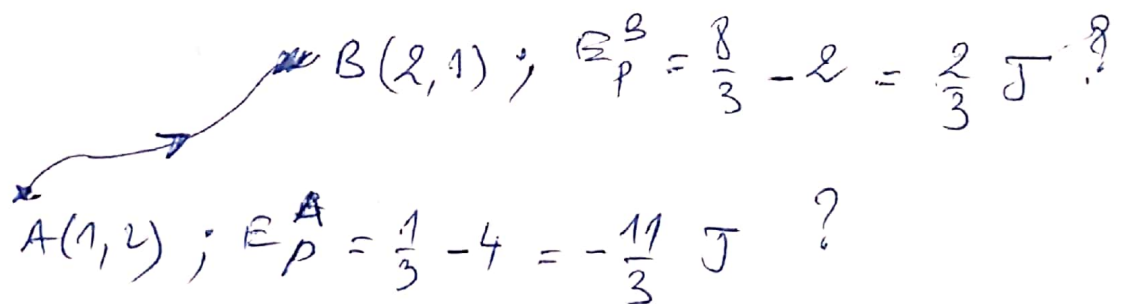 B(2,1) ; E_p^B = 8/3 - 2 = 2/3 J ?
A(1,2) ; E_p^A = 1/3 - 4 = - 11/3 J ?